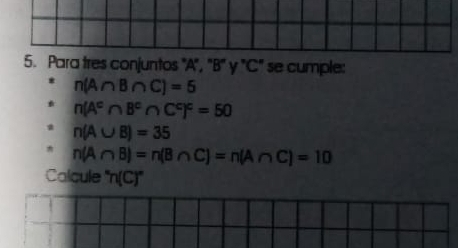 5. Para tres conjuntos "A", "B" y "C" se cumple:
* n(A ∩ B ∩ C) = 5
* n(Aᶜ ∩ Bᶜ ∩ Cᶜ)ᶜ = 50
* n(A ∪ B) = 35
* n(A ∩ B) = n(B ∩ C) = n(A ∩ C) = 10
Calcule "n(C)"